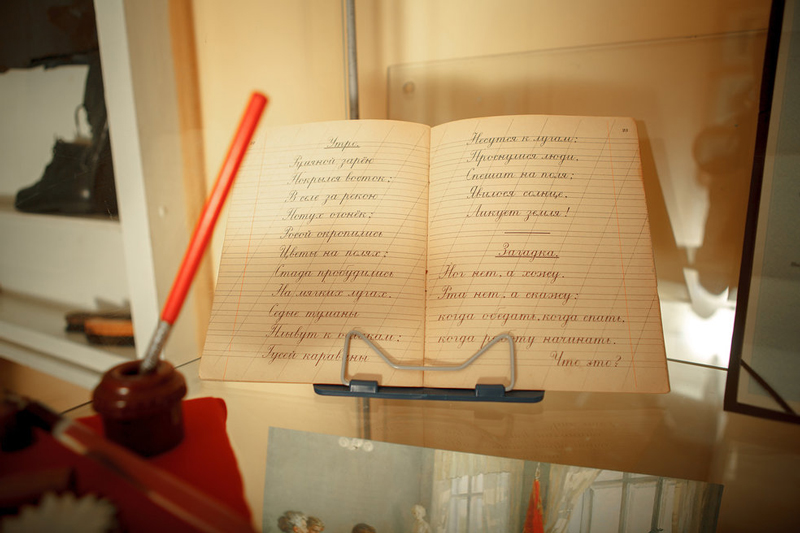 Утро.
Румяной зарёю
Покрылся восток;
В селе за рекою
Потух огонёк;
Росой окропились
Цветы на полях;
Стада пробудились
На мягких лугах.
Седые туманы
Плывут к облакам;
Гусей караваны
Несутся к лугам;
Проснулися люди,
Спешат на поля;
Явилося солнце,
Ликует земля!
Загадка.
Ног нет, а хожу.
Рта нет, а скажу;
когда обедать, когда спать,
когда работу начинать.
Что это?